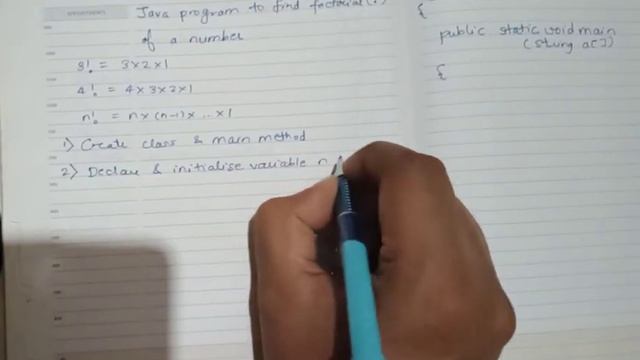 Java program to find factorial(!)
of a number
3! = 3×2×1
4! = 4×3×2×1
n! = n×(n-1)×...×1
1) Create class & main method
2) Declare & initialise variable n
{
public static void main
(String a[])
{